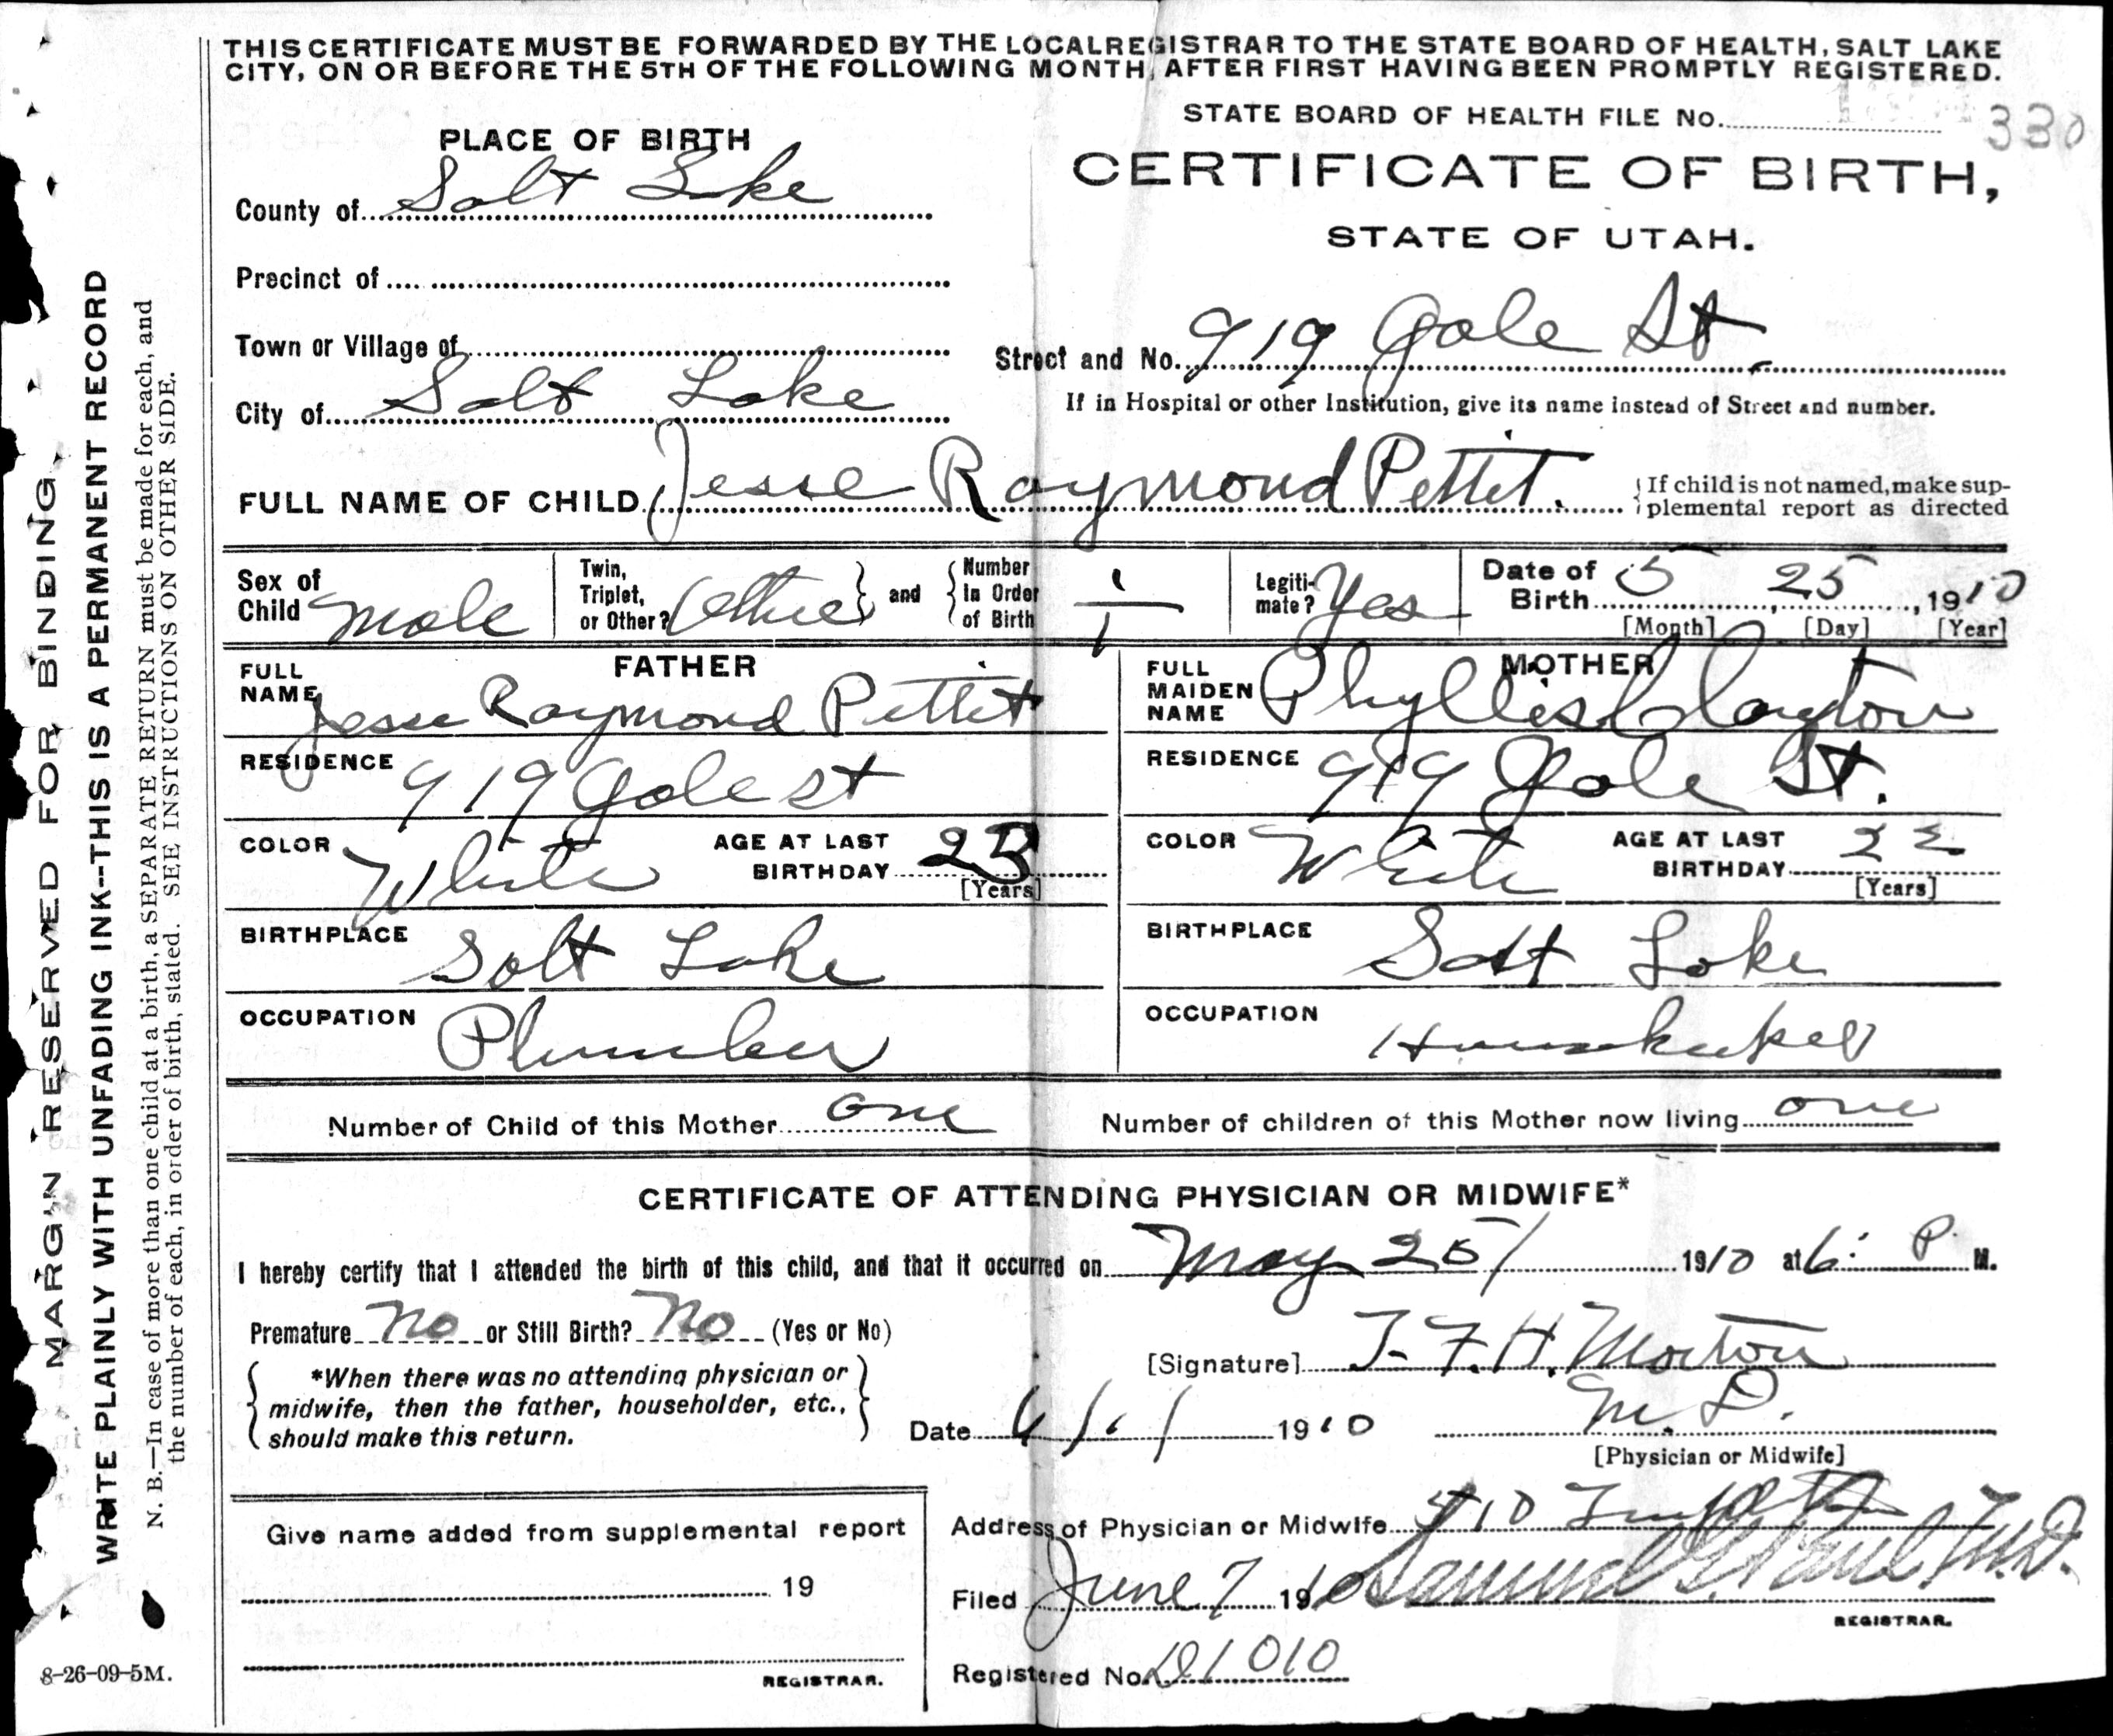 THIS CERTIFICATE MUST BE FORWARDED BY THE LOCAL REGISTRAR TO THE STATE BOARD OF HEALTH, SALT LAKE
CITY, ON OR BEFORE THE 5TH OF THE FOLLOWING MONTH, AFTER FIRST HAVING BEEN PROMPTLY REGISTERED.
STATE BOARD OF HEALTH FILE No. 330
PLACE OF BIRTH
CERTIFICATE OF BIRTH,
STATE OF UTAH.
County of Salt Lake
Precinct of
Town or Village of
Street and No. 919 Gale St.
City of Salt Lake
If in Hospital or other Institution, give its name instead of Street and number.
FULL NAME OF CHILD Jesse Raymond Pettit.
{If child is not named, make sup-
plemental report as directed
Sex of Child Male
Twin, Triplet, or Other? and Number In Order of Birth 1
Legiti-mate? Yes
Date of Birth 5 25, 1910
[Month] [Day] [Year]
FATHER
FULL NAME Jesse Raymond Pettit
RESIDENCE 919 Gale st
COLOR White AGE AT LAST BIRTHDAY 23
[Years]
BIRTHPLACE Salt Lake
OCCUPATION Plumber
MOTHER
FULL MAIDEN NAME Phyllis Clayton
RESIDENCE 919 Gale St.
COLOR White AGE AT LAST BIRTHDAY 22
[Years]
BIRTHPLACE Salt Lake
OCCUPATION Housekeeper
Number of Child of this Mother one
Number of children of this Mother now living one
CERTIFICATE OF ATTENDING PHYSICIAN OR MIDWIFE*
I hereby certify that I attended the birth of this child, and that it occurred on May 25/ 1910 at 6: P. M.
Premature No or Still Birth? No (Yes or No)
[Signature] T. F. H. Morton
*When there was no attending physician or
midwife, then the father, householder, etc.,
should make this return.
Date 6/1/ 1910
M. D.
[Physician or Midwife]
Give name added from supplemental report
19
REGISTRAR.
Address of Physician or Midwife 510
Filed June 7 1910 Samuel G. Paul M.D.
REGISTRAR.
Registered No. D1010
MARGIN RESERVED FOR BINDING.
WRITE PLAINLY WITH UNFADING INK--THIS IS A PERMANENT RECORD
N. B.—In case of more than one child at a birth, a SEPARATE RETURN must be made for each, and
the number of each, in order of birth, stated. SEE INSTRUCTIONS ON OTHER SIDE.
8-26-09-5M.